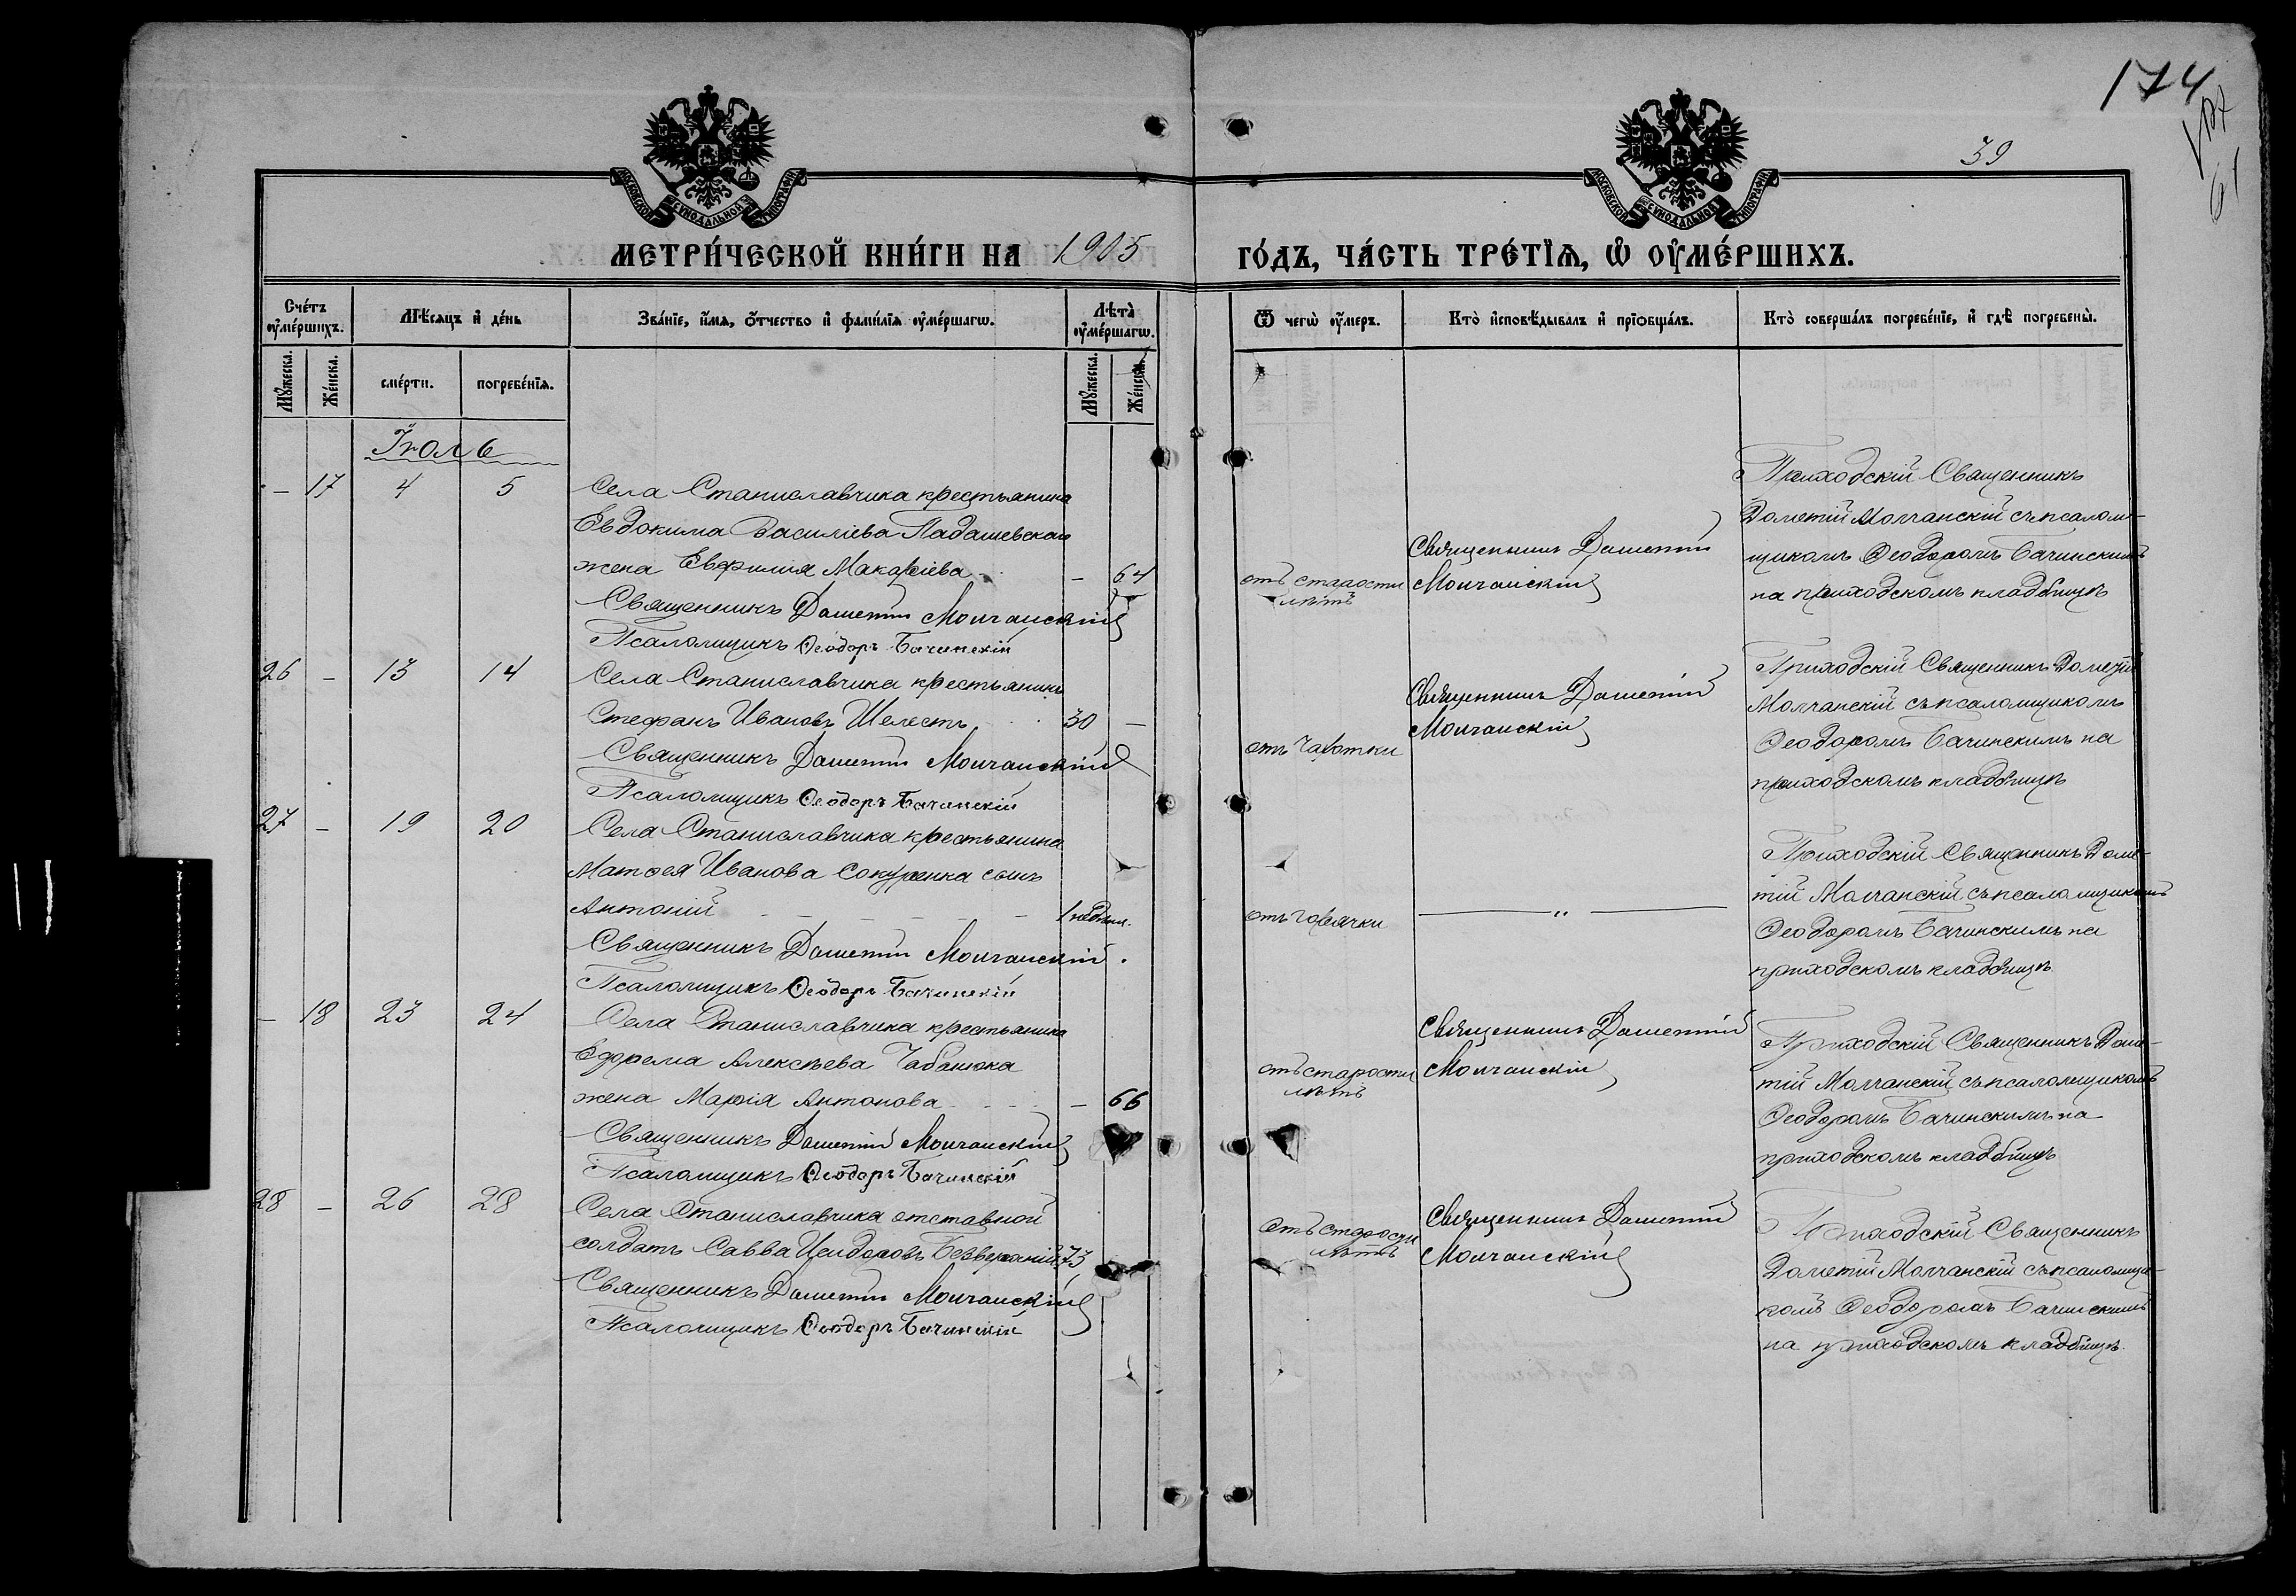 174
39
МОСКОВСКОЙ СУНОДАЛЬНОЙ ТИПОГРАФІИ
МОСКОВСКОЙ СУНОДАЛЬНОЙ ТИПОГРАФІИ
МЕТРИ́ЧЕСКОЙ КНИ́ГИ НА 1905 ГО́ДЪ, ЧА́СТЬ ТРЕ́ТЇѦ, Ѡ҆ ОУ҆МЕ́РШИХЪ.
Сче́тъ оу҆ме́ршихъ.
Мѣ́сяцъ и҆ де́нь
Зва́нїе, и҆́мѧ, ѻ҆́тчество и҆ фами́лїѧ оу҆ме́ршагѡ.
Лѣта̀ оу҆ме́ршагѡ.
Ѿ чегѡ̀ оу҆́меръ.
Кто̀ и҆сповѣ́дывалъ и҆ прїѡбща́лъ.
Кто̀ соверша́лъ погребе́нїе, и҆ гдѣ̀ погребены̀.
Мꙋ́жеска.
Же́нска.
сме́рти.
погребе́нїѧ.
Мꙋ́жеска.
Же́нска.
Іюль
– 17 4 5
Села Станиславчика крестьянина
Евдокима Василіева Падашевскаго
жена Евфимія Макаріева – 64
Священникъ Дометій Молчанскій
Псаломщикъ Ѳеодоръ Бачинскій
отъ старости
лѣтъ
Священникъ Дометій
Молчанскій
Приходскій Священникъ
Дометій Молчанскій съ псалом-
щикомъ Ѳеодоромъ Бачинскимъ
на приходскомъ кладбищѣ
26 – 13 14
Села Станиславчика крестьянинъ
Стефанъ Ивановъ Шелестъ 30 –
Священникъ Дометій Молчанскій
Псаломщикъ Ѳеодоръ Бачинскій
отъ чахотки
Священникъ Дометій
Молчанскій
Приходскій Священникъ Дометій
Молчанскій съ псаломщикомъ
Ѳеодоромъ Бачинскимъ на
приходскомъ кладбищѣ
27 – 19 20
Села Станиславчика крестьянина
Матѳея Иванова Сокуренка сынъ
Антоній – – – – – 1 недѣли.
Священникъ Дометій Молчанскій.
Псаломщикъ Ѳеодоръ Бачинскій
отъ горячки
— „ —
Приходскій Священникъ Доме-
тій Молчанскій съ псаломщикомъ
Ѳеодоромъ Бачинскимъ на
приходскомъ кладбищѣ.
– 18 23 24
Села Станиславчика крестьянина
Ефрема Алексѣева Чабанюка
жена Марія Антонова – 66
Священникъ Дометій Молчанскій
Псаломщикъ Ѳеодоръ Бачинскій
отъ старости
лѣтъ
Священникъ Дометій
Молчанскій
Приходскій Священникъ Доме-
тій Молчанскій съ псаломщикомъ
Ѳеодоромъ Бачинскимъ на
приходскомъ кладбищѣ
28 – 26 28
Села Станиславчика отставной
солдатъ Савва Исидоровъ Безверхній 73
Священникъ Дометій Молчанскій
Псаломщикъ Ѳеодоръ Бачинскій
отъ старости
лѣтъ
Священникъ Дометій
Молчанскій
Приходскій Священникъ
Дометій Молчанскій съ псаломщи-
комъ Ѳеодоромъ Бачинскимъ
на приходскомъ кладбищѣ.